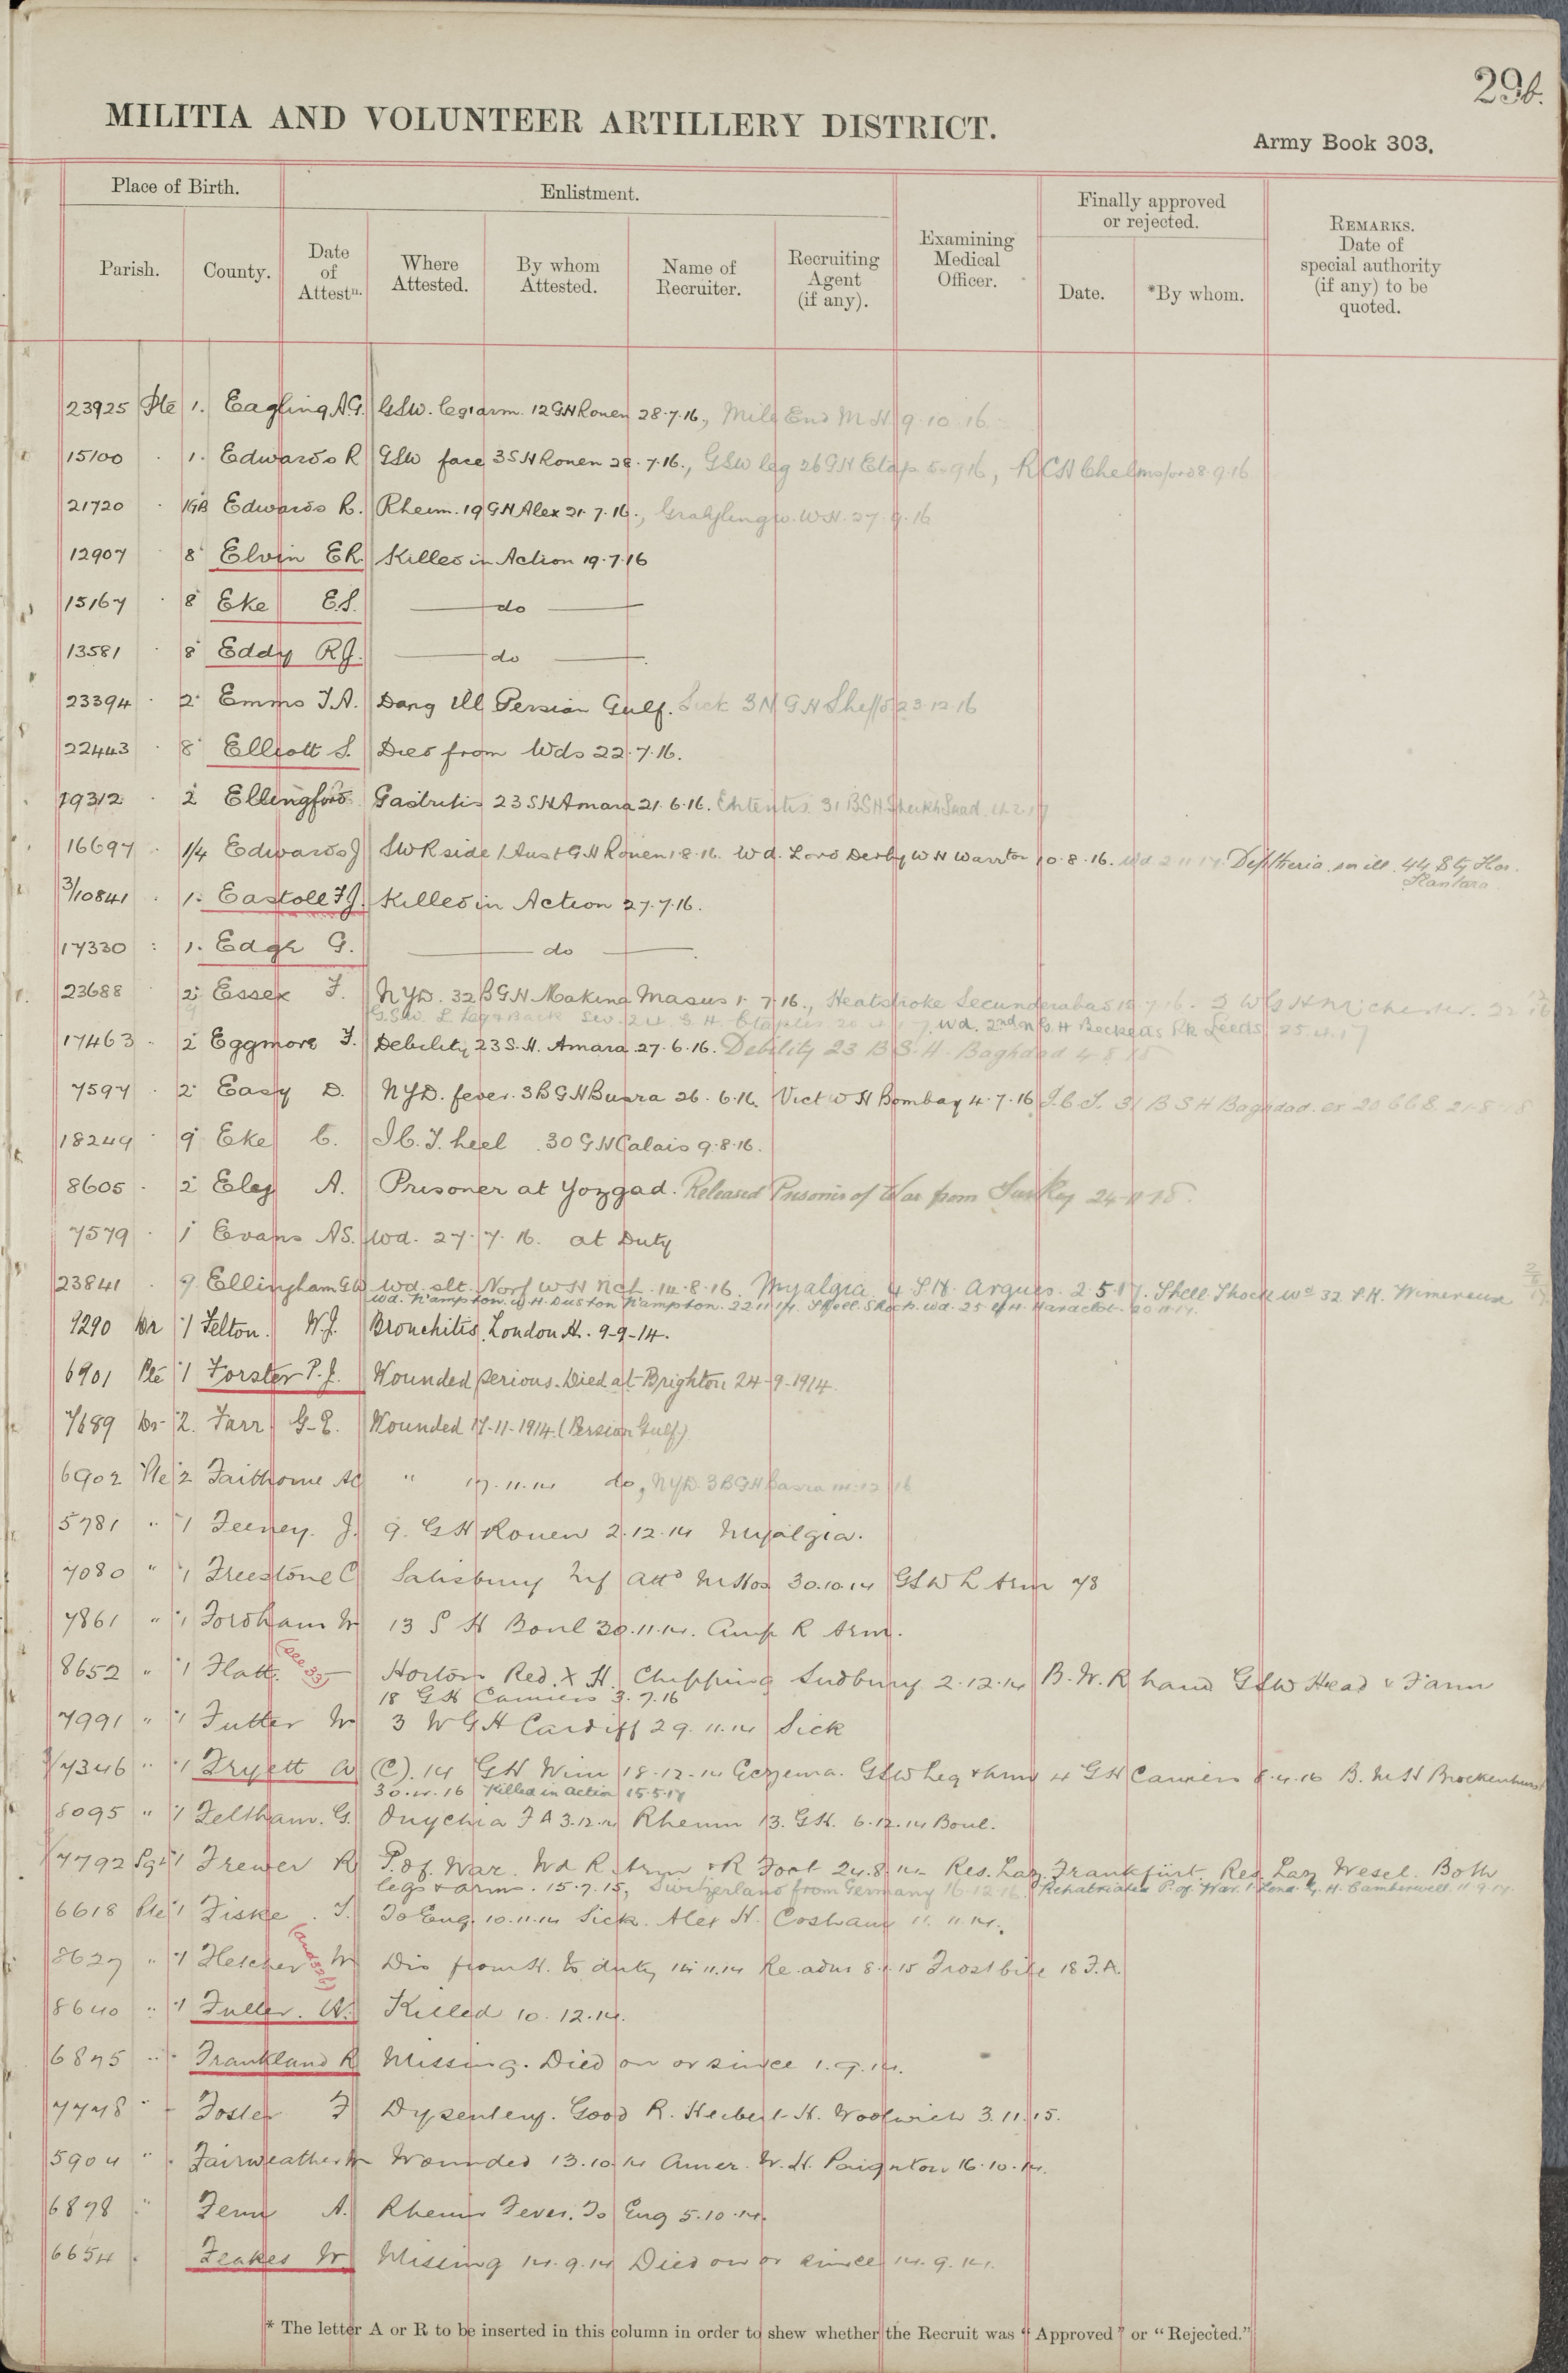 29b.
MILITIA AND VOLUNTEER ARTILLERY DISTRICT.
Army Book 303.
Place of Birth.
Enlistment.
Finally approved
or rejected.
Parish.
County.
Date
of
Attestn.
Where
Attested.
By whom
Attested.
Name of
Recruiter.
Recruiting
Agent
(if any).
Examining
Medical
Officer.
Date.
*By whom.
REMARKS.
Date of
special authority
(if any) to be
quoted.
23925 Pte 1. Eagling A.G. GSW. leg & arm. 12 GH Rouen 28.7.16., Mile End M H 9.10.16.
15100 . 1. Edwards R GSW face 3 S H Rouen 28.7.16., GSW leg 26 GH Etap 5.9.16, R C H Chelmsford 8.9.16
21720 . 1GB Edwards R. Rheum. 19 GH Alex 21.7.16., Graylingw. W H. 27.9.16
12907 8 Elvin E R. Killed in Action 19.7.16
15167 . 8 Eke E.S. do
13581 . 8 Eddy R J. do
23394 . 2 Emms T.A. Dang Ill Persian Gulf. Sick 3 N G H Sheffd 23.12.16
22443 . 8 Elliott S. Died from Wds 22.7.16.
19312 . 2 Ellingford Gastritis 23 S H Amara 21.6.16. Enteritis. 31 B S H Sheikh Saad.
16697 . 1/4 Edwards J SW R side 1 Aust G H Rouen 1.8.16. Wd. Lord Derby W H Warrton 10.8.16. Wd 2.11.17. Diptheria. 44 Sty Hos.
Kantara.
3/10841 . 1. Eastoll F J. Killed in Action 27.7.16.
17330 : 1. Edge G. do
23688 2 Essex F. NYD. 32 B G H Makina Masus 1.7.16., Heatstroke Secunderabad 2 W G H Mnchester. 22
9 G.S.W. L. Leg & Back Sev. 24 G. H. Etaples 20.4.17, wd. 2nd N G H Becketts Pk Leeds 25.4.17
17463 . 2 Eggmore F. Debility 23 S. H. Amara 27.6.16. Debility 23 B S. H. Baghdad 4.8.18
7597 . 2 Easy D. NYD. fever. 3 B G H Busra 26.6.16. Vict W H Bombay 4.7.16 I.C.T. 31 B S H Bagdad. ex 20 C C S. 21.8.18
18249 . 9 Eke C. I C. T. heel . 30 G H Calais 9.8.16.
8605 . 2 Eley A. Prisoner at Yozgad. Released Prisoner of War from Turkey 24.11.18.
7579 . 1 Evans A S. Wd. 27.7.16. at Duty
23841 . 9. Ellingham G W wd. slt. Norf W H Nch. 14.8.16. Myalgia 4 S H. Arques. 2.5.17. Shell Shock Wd 32 S.H. Wimereux
Wd. N'ampton. W.H. Duston N'ampton. 22.11.17. Shell Shock. wd. 25
9290 Dr 1 Felton. W.J. Bronchitis, London H. 9-9-14.
6901 Pte 1 Forster P. J. Wounded serious. Died at Brighton 24-9-1914.
7689 Dr 2. Farr G-E. Wounded 17-11-1914. (Persian Gulf)
6902 Pte 2 Faithorne AC " 17.11.14 do, NYD. 3 B G H Basra 14.12.16
5781 " 1 Feeney. J. 9. G H Rouen 2.12.14 Myalgia.
7080 " 1 Freestone C Salisbury Inf Attd M Hos 30.10.14 GSW L Arm 78
7861 " 1 Fordham W 13 S H Boul 30.11.14. Amp R Arm.
8652 " 1 Flatt. (see 33) Horton Red X H. Chipping Sudbury 2.12.14 B. W. R hand GSW Head & F'arm
18 GH Camiers 3.7.16
7991 " 1 Futter W 3 W G H Cardiff 29.11.14 Sick
3/7346 " 1 Fryett W (C). 14 GH Wim 18.12.14 Eczema. GSW Leg & Arm 4 GH Camiers 8.4.16 B. M H Brockenhurst
30.4.16 Killed in action 15.5.17
8095 " 1 Feltham. G. Onychia F A 3.12.14 Rheum 13. G H. 6.12.14 Boul.
7792 Sgt 1 Frewer R P. of War. Wd R. Arm & R Foot 24.8.14 Res. Laz. Frankfürt. Res Laz Wesel. Both
legs & arms. 15.7.15, Switzerland from Germany 16.12.16. Repatriated P. of War. 1 Lond. G. H. Camberwell. 11.9.17.
6618 Pte 1 Fiske . T. To Eng. 10.11.14 Sick. Alex H. Cosham 11.11.14.
8627 " 1 Fletcher (and 32b) W Dis from H. to duty 14.11.14 Re. adm 8.1.15 Frostbite 18 F.A.
8640 " 1 Fuller. W. Killed 10.12.14.
6875 " . Frankland R Missing. Died on or since 1.9.14.
7778 " - Foster F Dysentery. Good R. Herbert H. Woolwich 3.11.15.
5904 " . Fairweather W Wounded 13.10.14 Amer. W. H. Paignton 16.10.14.
6878 " Fenn A. Rheum Fever. To Eng 5.10.14.
6654 . Feakes W. Missing 14.9.14 Died on or since 14.9.14.
* The letter A or R to be inserted in this column in order to shew whether the Recruit was "Approved" or "Rejected."